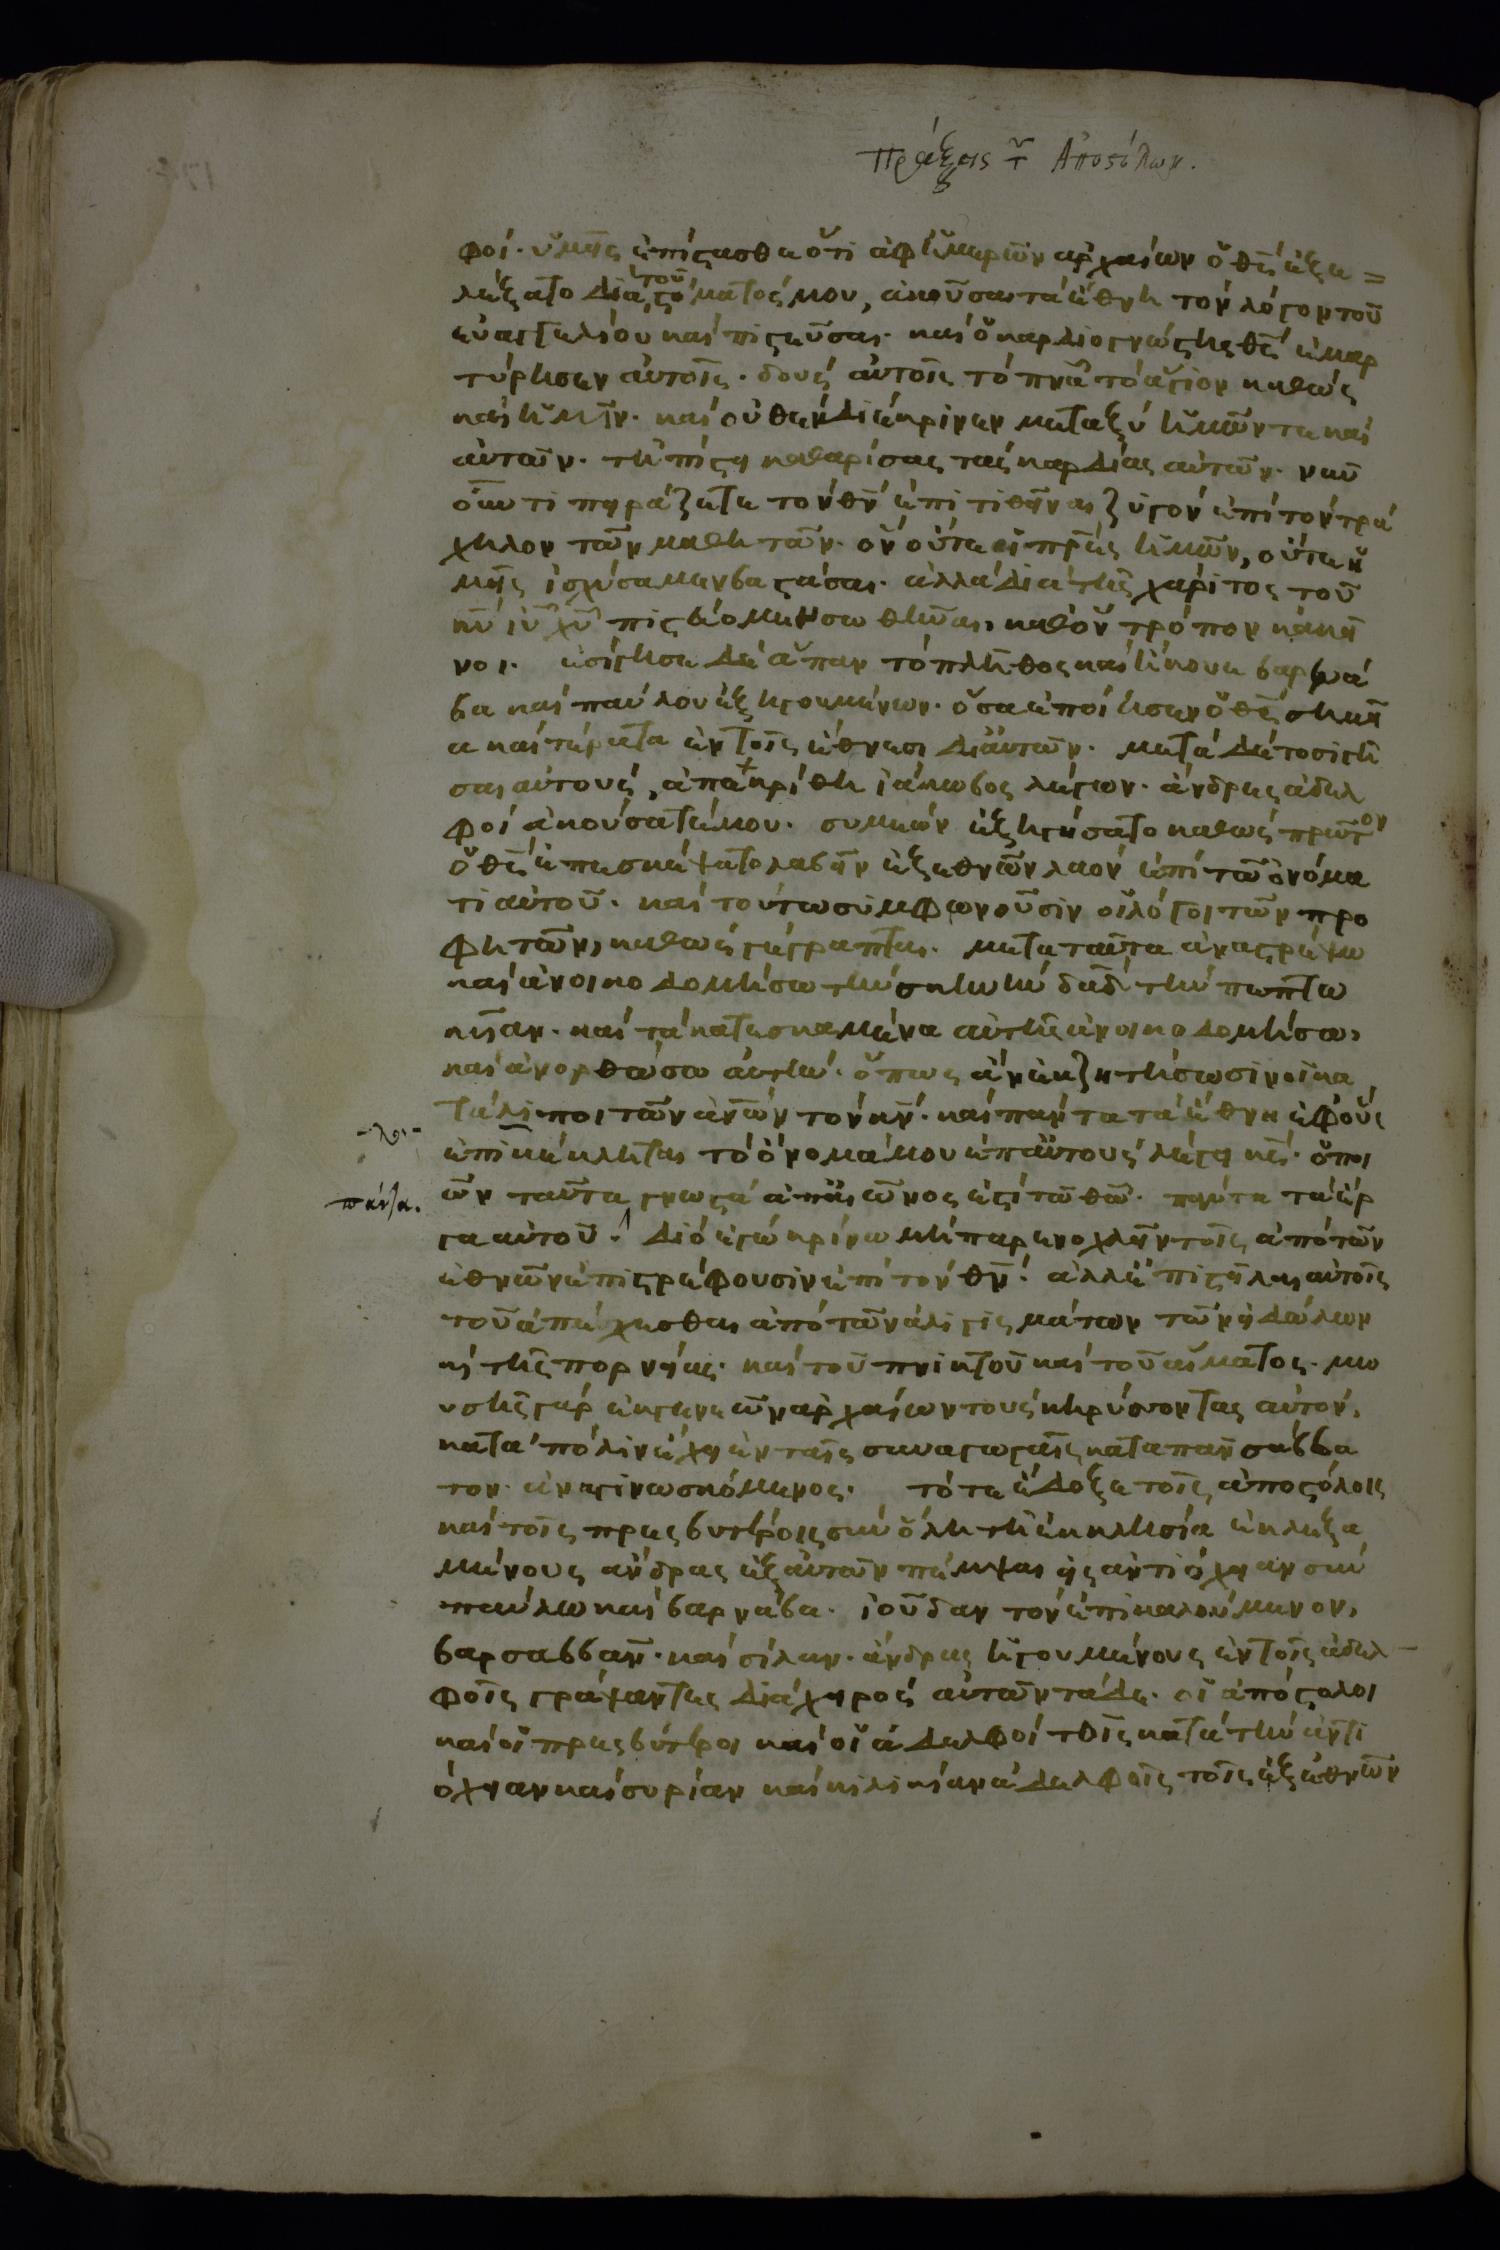 Πράξεις τ῀ Αποστόλων.
φοί· ὑμεῖς ἐπίστασθε ὅτι ἀφ ἡμερῶν ἀρχαίων ὁ θς ἐξε=
λέξατο διὰ τοῦ στόματός μου, ἀκοῦσαι τὰ ἔθνη τὸν λόγον τοῦ
εὐαγγελίου καὶ πιστεῦσαι· καὶ ὁ καρδιογνώστης θς ἐμαρ
τύρησεν αὐτοῖς· δοὺς αὐτοῖς τὸ πνα τὸ ἅγιον καθὼς
καὶ ἡμῖν· καὶ οὐθὲν διέκρινεν μεταξὺ ἡμῶν τε καὶ
αὐτῶν· τῆ πίστει καθαρίσας τὰς καρδίας αὐτῶν· νῦν
οὖν τί πειράζετε τὸν θν ἐπιτιθῆναι ζυγὸν ἐπὶ τὸν τρά
χηλον τῶν μαθητῶν· ὃν οὔτε οἱ πρες ἡμῶν, οὔτε ἡ
μεῖς ἰσχύσαμεν βαστάσαι· ἀλλὰ διὰ τῆς χάριτος τοῦ
κυ ιυ χυ πιστεύομεν σωθῆναι, καθ ὃν τρόπον κἀκεῖ
νοι· ἐσίγησε δὲ ἅπαν τὸ πλῆθος καὶ ἤκουε βαρνά
βα καὶ παύλου ἐξηγουμένων· ὅσα ἐποίησεν ὁ θς σημεῖ
α καὶ τέρατα ἐν τοῖς ἔθνεσι δι αὐτῶν· μετὰ δὲ τὸ σιγῆ
σαι αὐτοὺς, ἀπεκρίθη ἰάκωβος λέγων· ἄνδρες ἀδελ
φοὶ ἀκούσατέ μου· συμεὼν ἐξηγήσατο καθὼς πρῶτον
ὁ θς ἐπεσκέψατο λαβεῖν ἐξ ἐθνῶν λαὸν ἐπὶ τῶ ὀνόμα
τι αὐτοῦ· καὶ τούτω συμφωνοῦσιν οἱ λόγοι τῶν προ
φητῶν, καθὼς γέγραπται· μετὰ ταῦτα ἀναστρέψω
καὶ ἀνοικοδομήσω τὴν σκηνὴν δαδ τὴν πεπτω
κυῖαν· καὶ τὰ κατεσκαμένα αὐτῆς ἀνοικοδομήσω,
καὶ ἀνορθώσω αὐτήν· ὅπως ἂν ἐκζητήσωσιν οἱ κα
τάλιποι τῶν ἀνων τὸν κν· καὶ πάντα τὰ ἔθνη ἐφ οὓς
ἐπικέκληται τὸ ὄνομά μου ἐπ αὐτοὺς λέγει κς· ὁ ποι
πάντα.
ῶν ταῦτα γνωστὰ ἀπ αἰῶνος ἐστὶ τῶ θῶ· πάντα τὰ ἔρ
γα αὐτοῦ· Διὸ ἐγὼ κρίνω μὴ παρενοχλεῖν τοῖς ἀπὸ τῶν
ἐθνῶν ἐπιστρέφουσιν ἐπὶ τὸν θν· ἀλλ ἐπιστεῖλαι αὐτοῖς
τοῦ ἀπέχεσθαι ἀπὸ τῶν ἀλισγισμάτων τῶν εἰδώλων
κ τῆς πορνείας· καὶ τοῦ πνικτοῦ καὶ τοῦ αἵματος· μω
υσῆς γὰρ ἐκ γενεῶν ἀρχαίων τοὺς κηρύσσοντας αὐτὸν,
κατὰ πόλιν ἔχει ἐν ταῖς συναγωγαῖς κατὰ πᾶν σάββα
τον ἀναγινωσκόμενος· τότε ἔδοξε τοῖς ἀποστόλοις
καὶ τοῖς πρεσβυτέροις σὺν ὅλη τῆ ἐκκλησία ἐκλεξα
μένους ἄνδρας ἐξ αὐτῶν πέμψαι εἰς ἀντιόχειαν σὺν
παύλω καὶ βαρνάβα· ἰούδαν τὸν ἐπικαλούμενον,
βαρσαββᾶν· καὶ σίλαν· ἄνδρας ἡγουμένους ἐν τοῖς ἀδελ-
φοῖς γράψαντες διὰ χειρὸς αὐτῶν τάδε· οἱ ἀπόστολοι
καὶ οἱ πρεσβύτεροι καὶ οἱ ἀδελφοὶ τοῖς κατὰ τὴν ἀντι
όχειαν καὶ συρίαν καὶ κιλικίαν ἀδελφοῖς τοῖς ἐξ ἐθνῶν